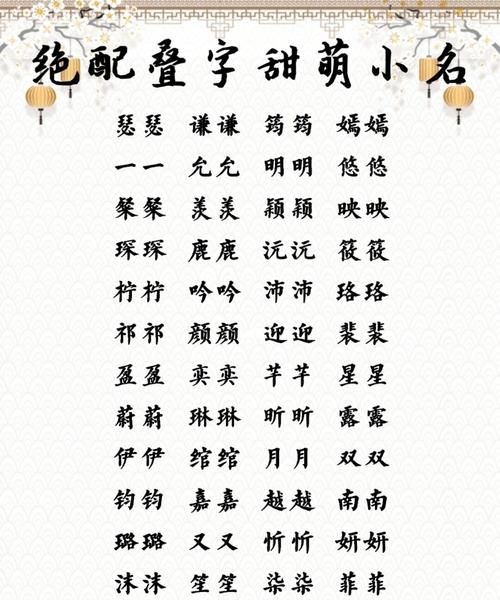 绝配叠字 甜萌小名
瑟瑟 谦谦 筠筠 嫣嫣
一一 允允 明明 悠悠
粲粲 羡羡 颖颖 映映
琛琛 鹿鹿 沅沅 筱筱
柠柠 吟吟 沛沛 珞珞
祁祁 颜颜 迎迎 裴裴
盈盈 奕奕 芊芊 星星
蔚蔚 琳琳 昕昕 露露
伊伊 绾绾 月月 双双
钧钧 嘉嘉 越越 南南
璐璐 又又 忻忻 妍妍
沫沫 笙笙 柒柒 菲菲